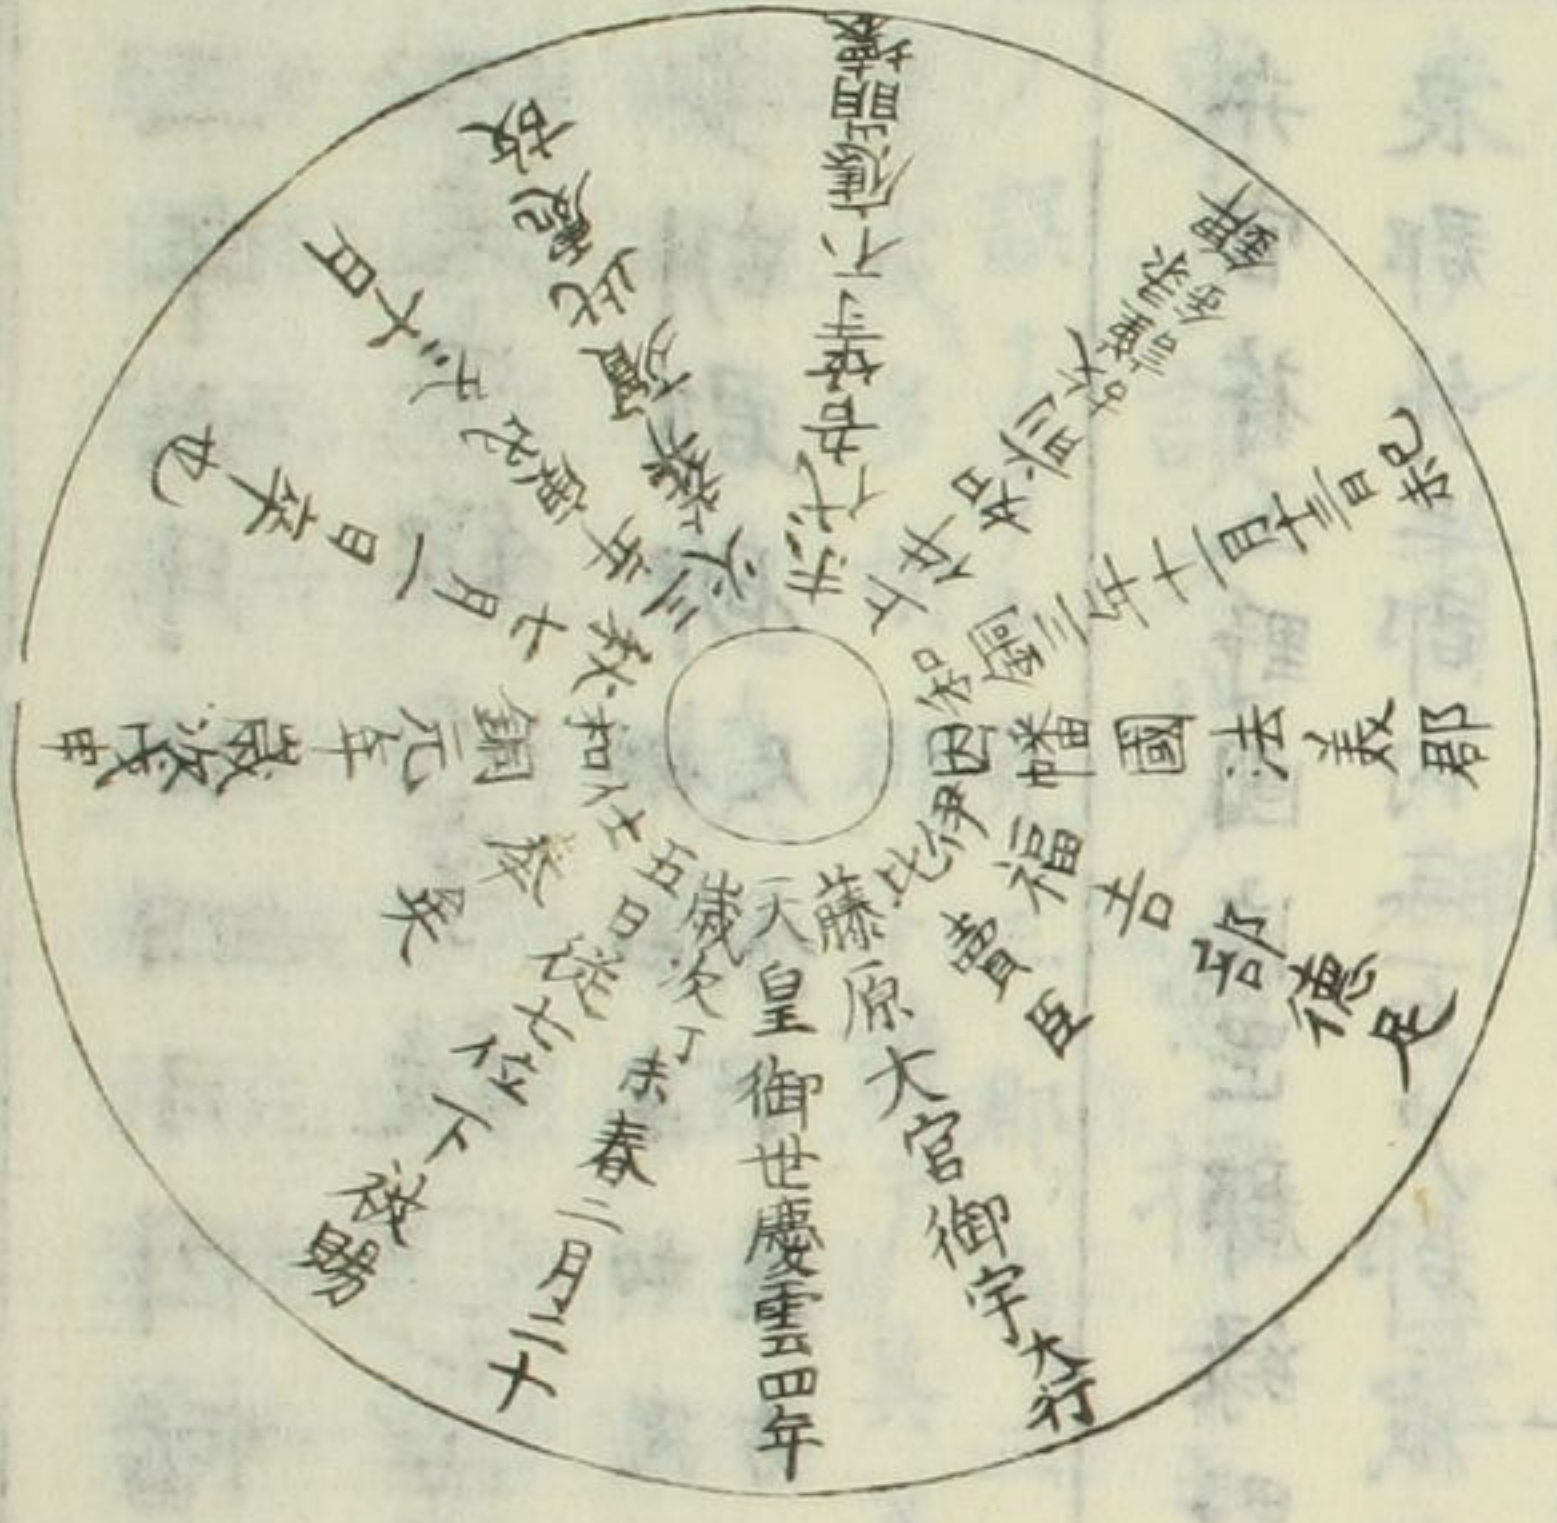 因幡國法美郡
伊福吉部德足
比賣臣
藤原大宮御宇大行
天皇御世慶雲四年
歲次丁未春二月二十
五日從七位下被賜
仕奉矣
和銅元年歲次戊申
秋七月一日卒也
三年庚戌冬十月
火葬即殯此處故
末代君等不應崩壞
上件如前故謹錄錍
和銅三年十一月十三日己未